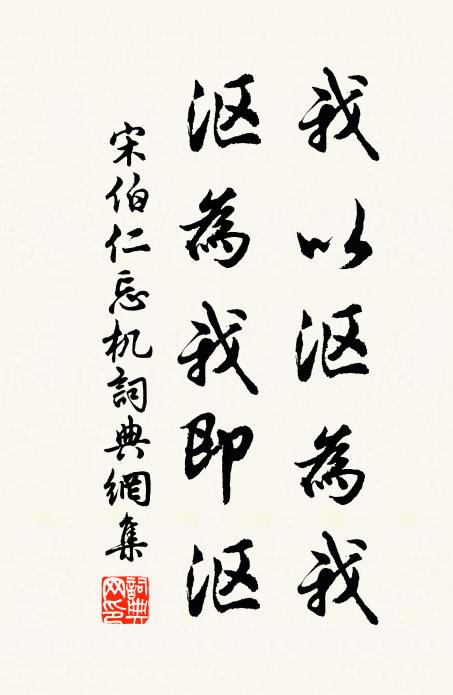 我以沤為我
沤為我即沤
宋伯仁忘机詞典網集
詞典网印